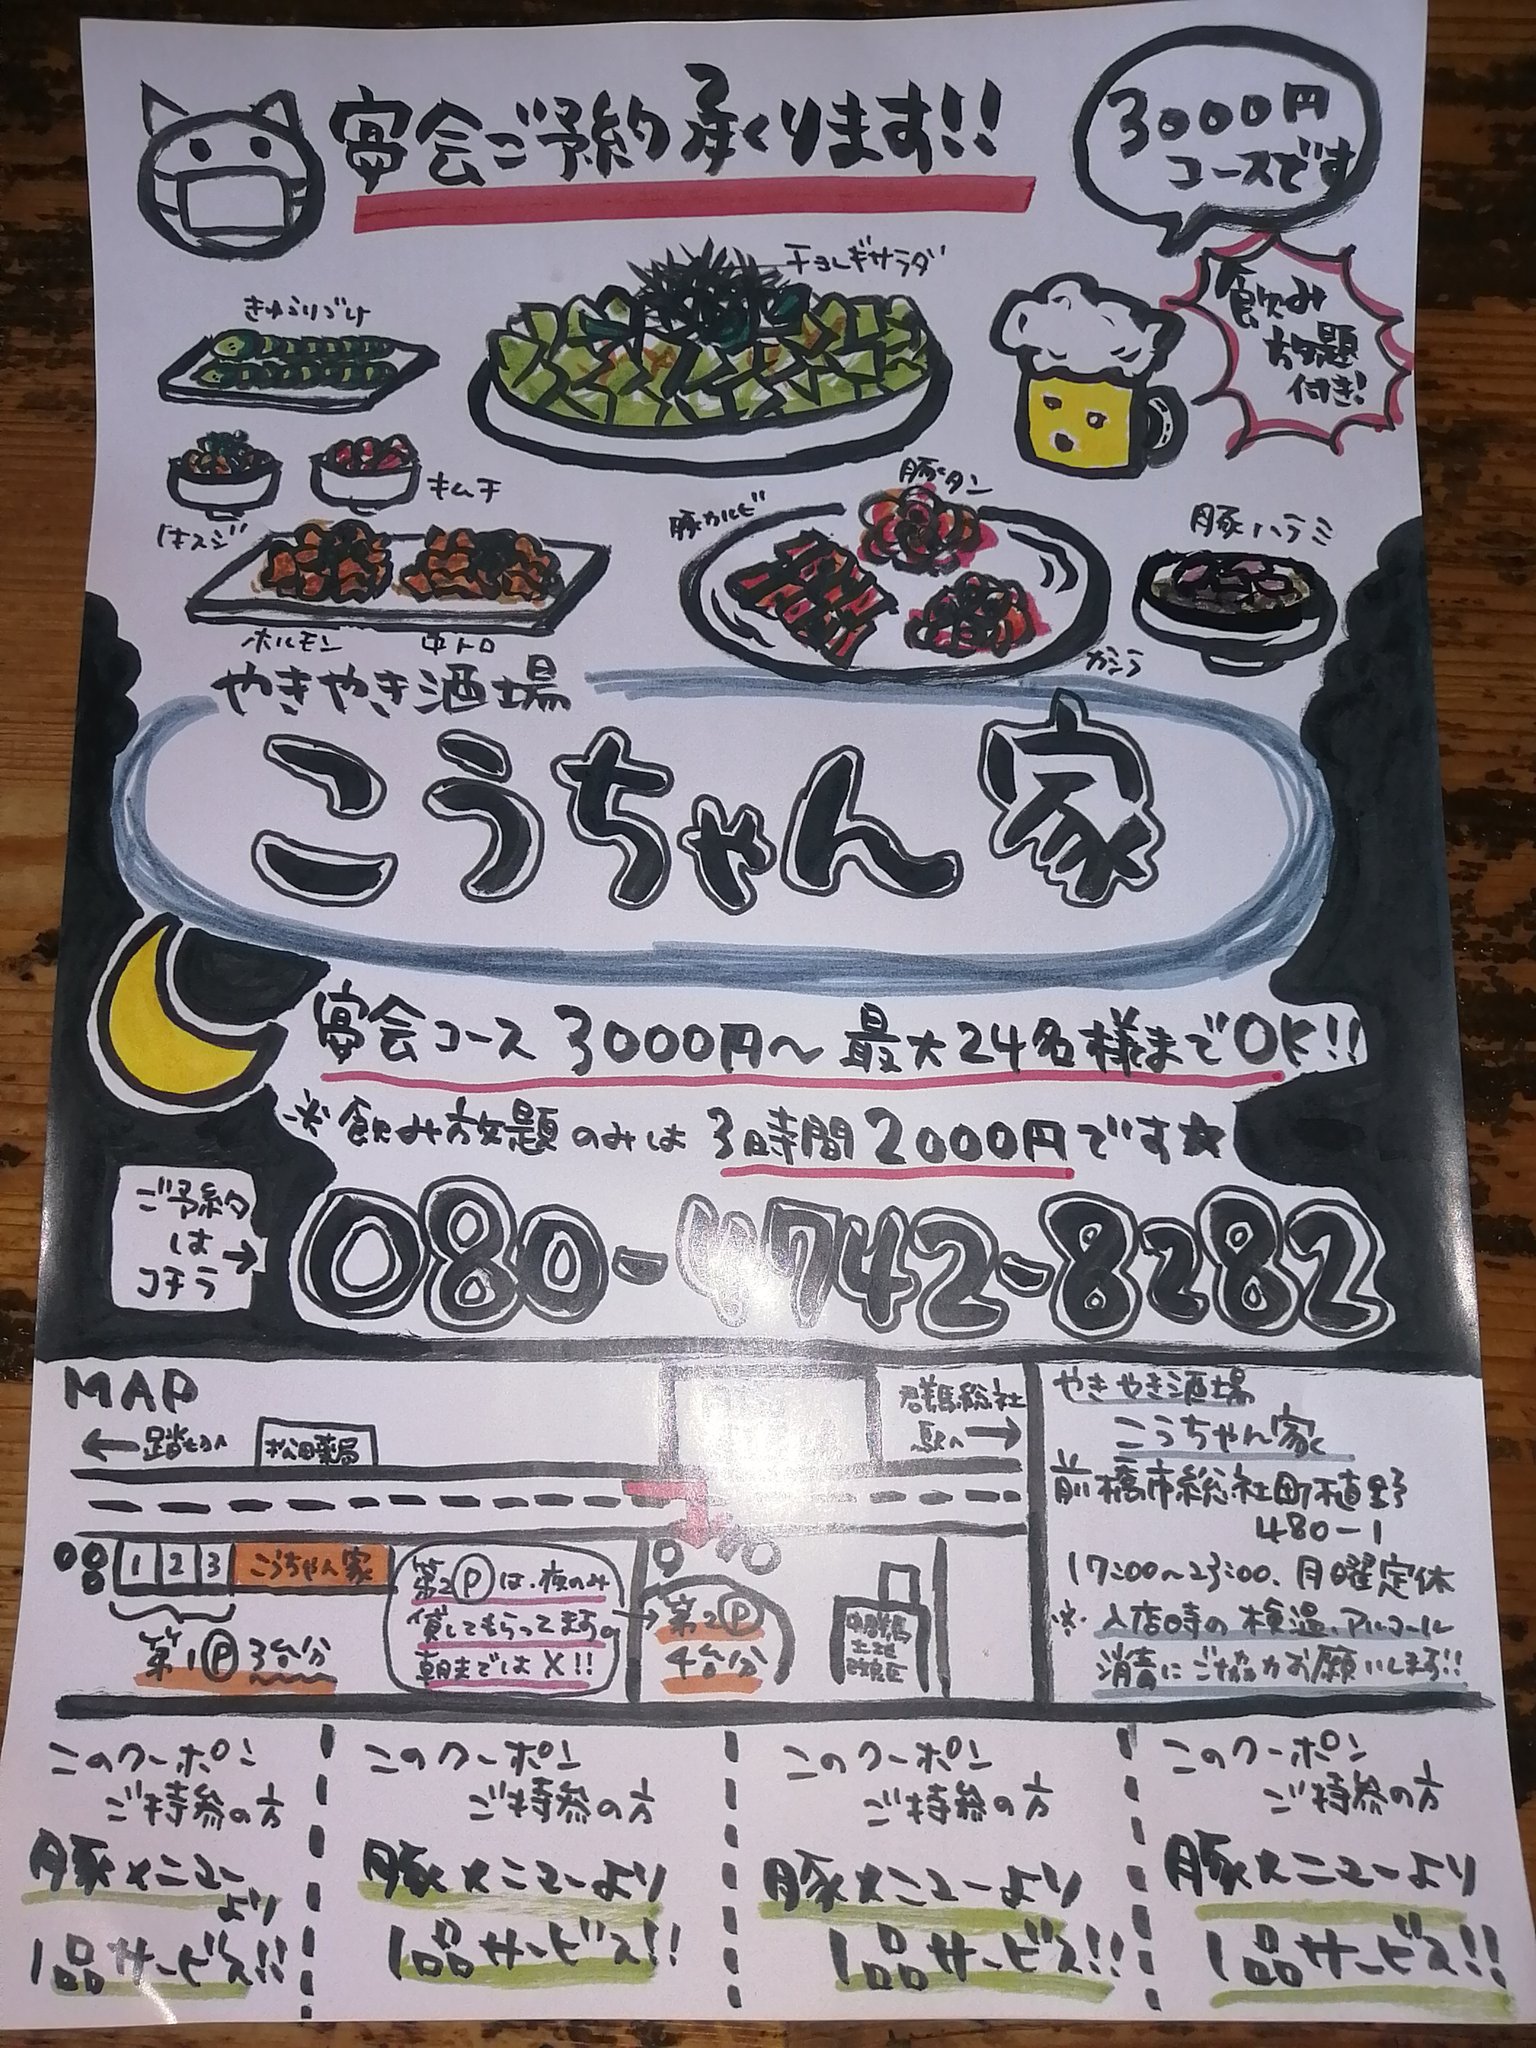 宴会ご予約承ります!!
3000円
コースです
飲み
放題
付き!
チョレギサラダ
きゅうりづけ
キムチ
牛スジ
豚カルビ
豚タン
豚ハラミ
ホルモン
中トロ
カシラ
やきやき酒場
こうちゃん家
宴会コース 3000円〜 最大24名様までOK!!
※飲み放題のみは 3時間2000円です★
ご予約
は→
コチラ
080-4742-8282
MAP
←踏切へ
松田薬局
群馬総社
駅へ→
1 2 3 こうちゃん家
第1Ⓟ3台分
第2Ⓟは、夜のみ
貸してもらってます。
朝までは×!!
第2Ⓟ
4台分
中群馬
土地
改良区
やきやき酒場
こうちゃん家
前橋市総社町植野
480-1
17:00〜23:00、月曜定休
※入店時の検温、アルコール
消毒にご協力お願いします!!
このクーポン
ご持参の方
豚メニュー
より
1品サービス!!
このクーポン
ご持参の方
豚メニューより
1品サービス!!
このクーポン
ご持参の方
豚メニューより
1品サービス!!
このクーポン
ご持参の方
豚メニューより
1品サービス!!